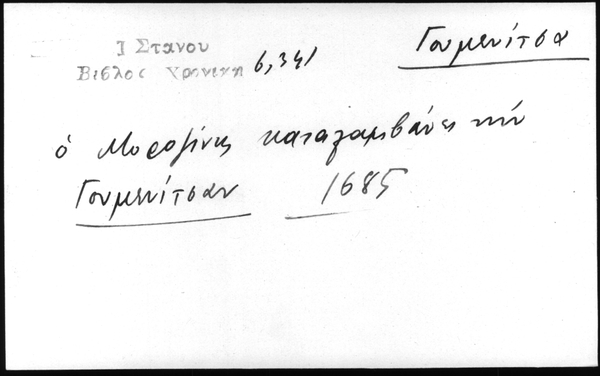 Ι Στανου
Βιβλος Χρονικη 6,341
Γουμενίτσα
ὁ Μοροζίνης καταλαμβάνει τὴν
Γουμενίτσαν 1685